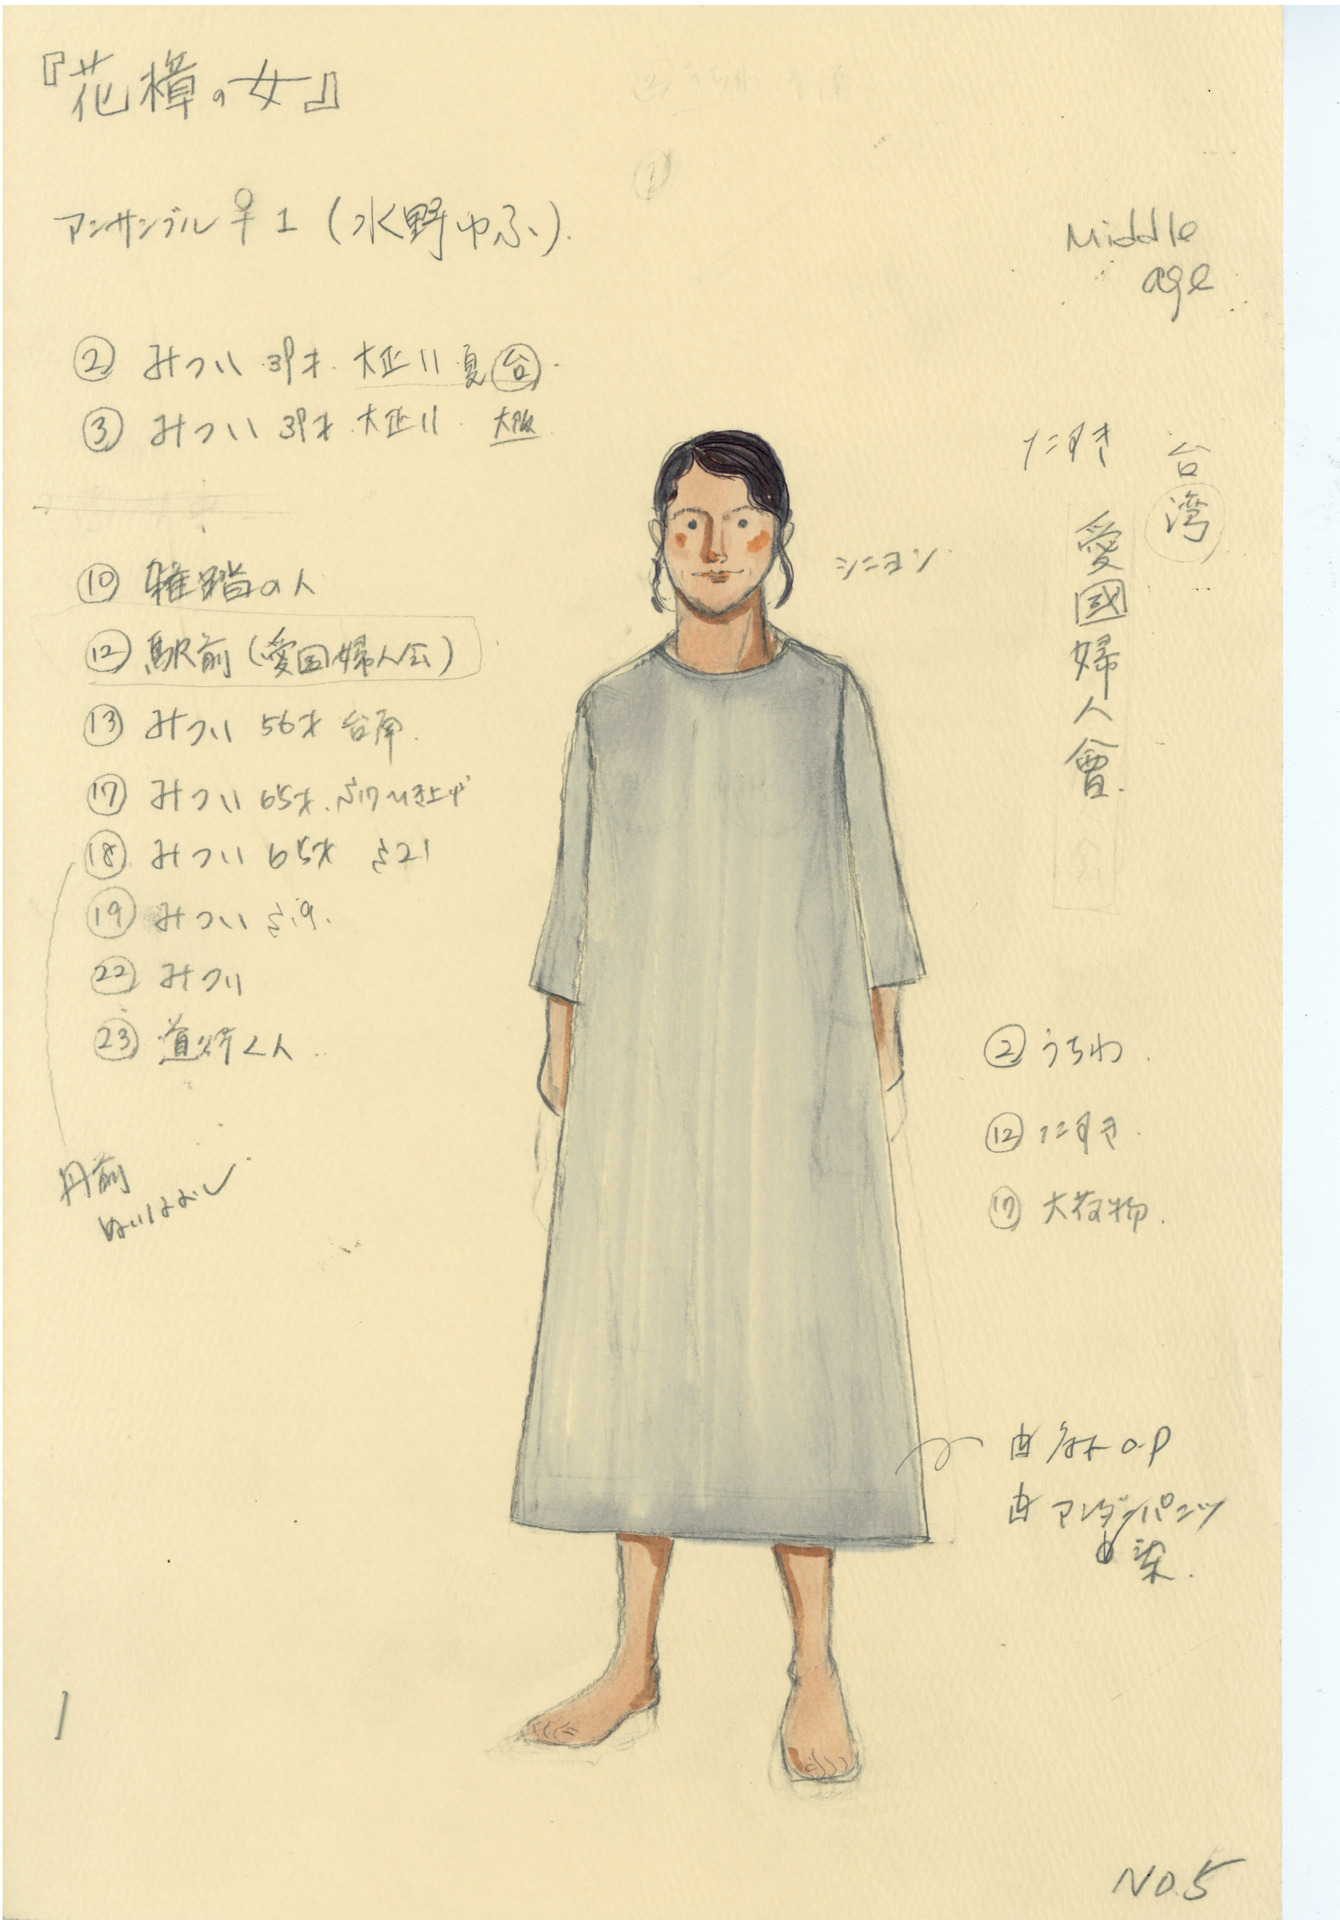 『花樟の女』
アンサンブル♀1（水野ゆふ）.
Middle
age
② みつい 39才. 大正11 夏 ㊎台
③ みつい 39才. 大正11. 大阪
たすき
台湾
愛國婦人會.
シニヨン
⑩ 雑踏の人
⑫ 駅前（愛国婦人会）
⑬ みつい 56才 台南.
⑰ みつい 65才. S17 ひき上げ
⑱ みつい 65才 S21
⑲ みつい
㉒ みつい
㉓ 道行く人
丹前
② うちわ.
⑫ たすき.
⑰ 大荷物.
O.P
アンダーパンツ
染.
1
NO.5